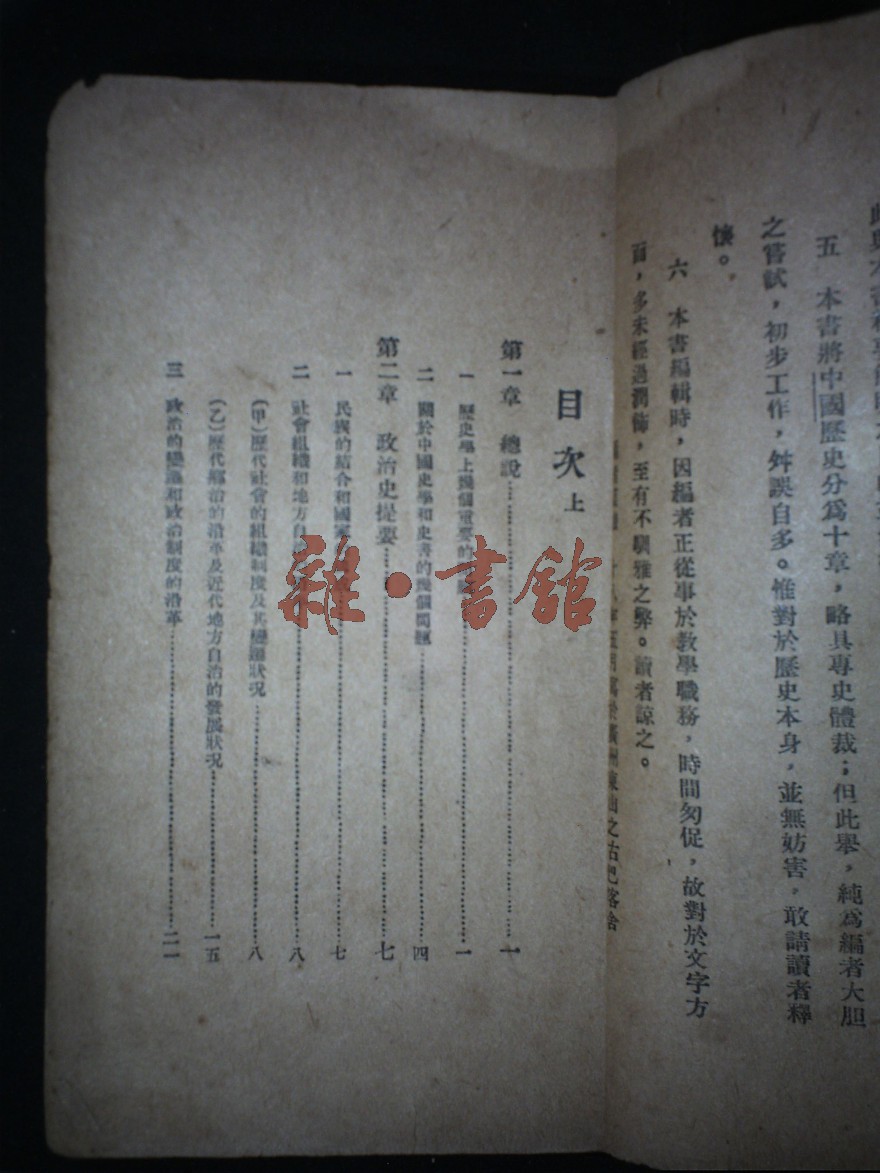 五　本書將中國歷史分爲十章，略具專史體裁；但此舉，純爲編者大胆
之嘗試，初步工作，舛誤自多。惟對於歷史本身，並無妨害，敢請讀者釋
懷。
六　本書編輯時，因編者正從事於教學職務，時間匆促，故對於文字方
面，多未經過潤飾，至有不馴雅之弊。讀者諒之。
於廣州東山之古巴客舍
目次上
第一章　總說……一
一　歷史學上幾個重要的……一
二　關於中國史學和史書的幾個問題……四
第二章　政治史提要……七
一　民族的結合和國家……七
二　社會組織和地方自……八
（甲）歷代社會的組織制度及其變遷狀况……八
（乙）歷代鄉治的沿革及近代地方自治的發展狀况……一五
三　政治的變遷和政治制度的沿革……二一
雜·書館